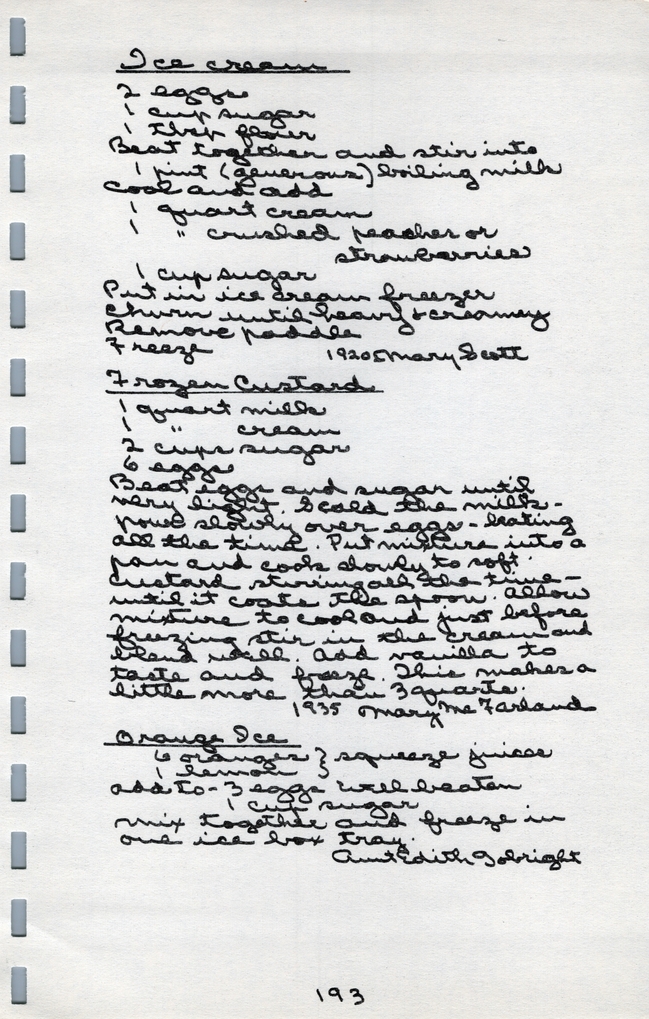 Ice cream
2 eggs
1 cup sugar
1 tbsp flour
Beat together and stir into
1 pint (generous) boiling milk
Cool and add
1 quart cream
1 " crushed peaches or
strawberries
1 cup sugar
Put in ice cream freezer
Churn until heavy & creamey
Remove paddle
Freeze 1920s Mary Scott
Frozen Custard
1 quart milk
1 " cream
2 cups sugar
6 eggs
Beat eggs and sugar until
very light. Scald the milk -
pour slowly over eggs - beating
all the time. Put mixture into a
pan and cook slowly to soft
custard stiring all the time -
until it coats the spoon. Allow
mixture to cool and just before
freezing stir in the cream and
blend well. Add vanilla to
taste and freeze. This makes a
little more than 3 quarts.
1935 Mary McFarland
Orange Ice
6 oranges } squeeze juices
1 lemon }
add to - 3 eggs well beaten
1 cup sugar
mix together and freeze in
one ice box tray.
Aunt Edith Gobright
193